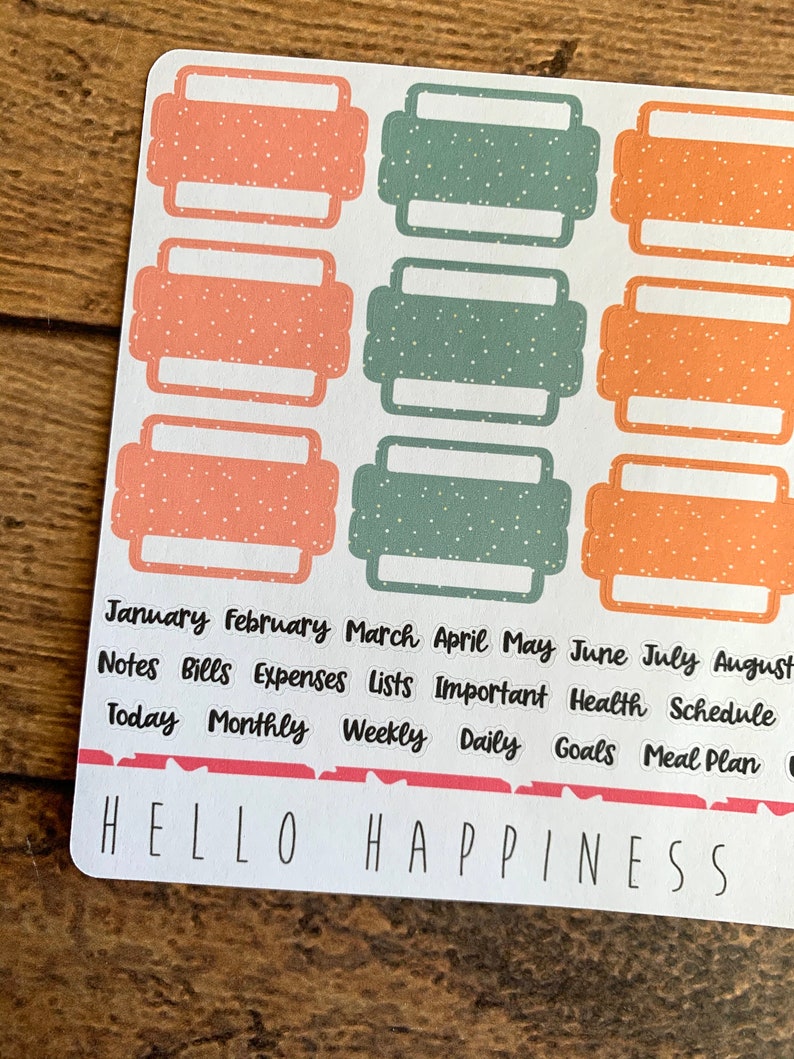 January February March April May June July August
Notes Bills Expenses Lists Important Health Schedule
Today Monthly Weekly Daily Goals Meal Plan
HELLO HAPPINESS